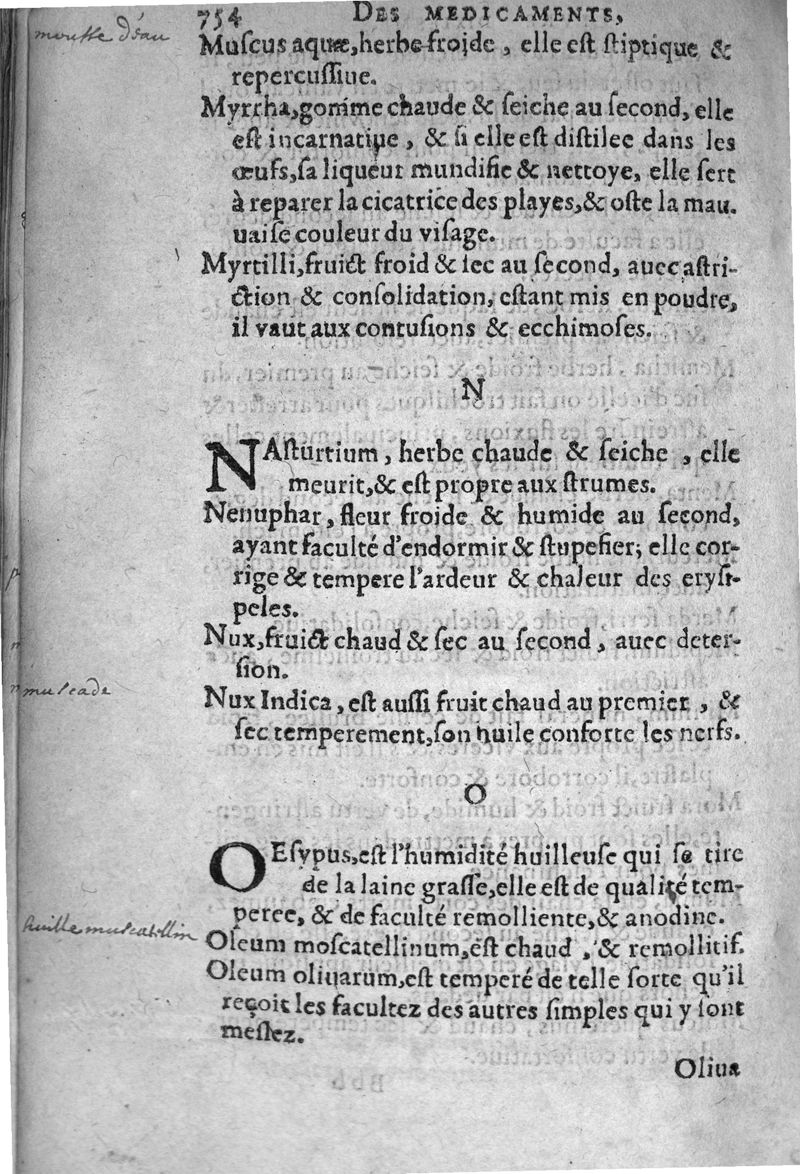 754 DES MEDICAMENTS,
mousse d'éau
Muſcus aquæ, herbe froide, elle eſt ſtiptique &
repercuſſiue.
Myrrha, gomme chaude & ſeiche au ſecond, elle
eſt incarnatiue, & ſi elle eſt diſtilee dans les
œufs, ſa liqueur mundifie & nettoye, elle ſert
à reparer la cicatrice des playes, & oſte la mau.
uaiſe couleur du viſage.
Myrtilli, fruict froid & ſec au ſecond, auec aſtri-
ction & conſolidation, eſtant mis en poudre,
il vaut aux contuſions & ecchimoſes.
N
NAſturtium, herbe chaude & ſeiche, elle
meurit, & eſt propre aux ſtrumes.
Nenuphar, fleur froide & humide au ſecond,
ayant faculté d'endormir & ſtupefier; elle cor-
rige & tempere l'ardeur & chaleur des eryſi-
peles.
Nux, fruict chaud & ſec au ſecond, auec deter-
ſion.
muscade
Nux Indica, eſt auſſi fruit chaud au premier, &
ſec temperement, ſon huile conforte les nerfs.
O
OEſypus, eſt l'humidité huilleuſe qui ſe tire
de la laine graſſe, elle eſt de qualité tem-
peree, & de faculté remolliente, & anodine.
huille muscatellin
Oleum moſcatellinum, eſt chaud, & remollitif.
Oleum oliuarum, eſt temperé de telle ſorte qu'il
reçoit les facultez des autres ſimples qui y ſont
meſlez.
Oliua